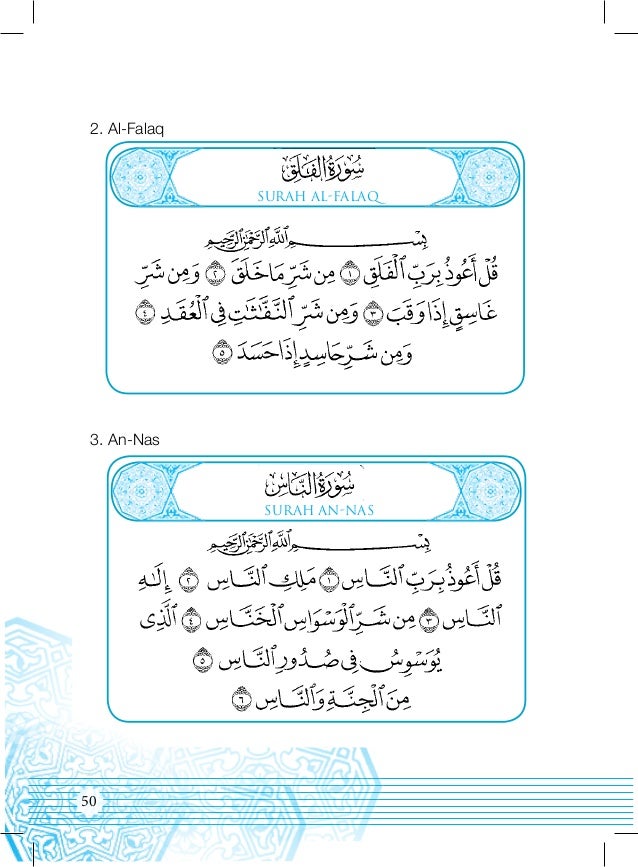 2. Al-Falaq
سُورَةُ الْفَلَقِ
SURAH AL-FALAQ
بِسْمِ ٱللَّهِ ٱلرَّحْمَٰنِ ٱلرَّحِيمِ
قُلْ أَعُوذُ بِرَبِّ ٱلْفَلَقِ ١ مِن شَرِّ مَا خَلَقَ ٢ وَمِن شَرِّ
غَاسِقٍ إِذَا وَقَبَ ٣ وَمِن شَرِّ ٱلنَّفَّٰثَٰتِ فِى ٱلْعُقَدِ ٤
وَمِن شَرِّ حَاسِدٍ إِذَا حَسَدَ ٥
3. An-Nas
سُورَةُ النَّاسِ
SURAH AN-NAS
بِسْمِ ٱللَّهِ ٱلرَّحْمَٰنِ ٱلرَّحِيمِ
قُلْ أَعُوذُ بِرَبِّ ٱلنَّاسِ ١ مَلِكِ ٱلنَّاسِ ٢ إِلَٰهِ
ٱلنَّاسِ ٣ مِن شَرِّ ٱلْوَسْوَاسِ ٱلْخَنَّاسِ ٤ ٱلَّذِى
يُوَسْوِسُ فِى صُدُورِ ٱلنَّاسِ ٥
مِنَ ٱلْجِنَّةِ وَٱلنَّاسِ ٦
50